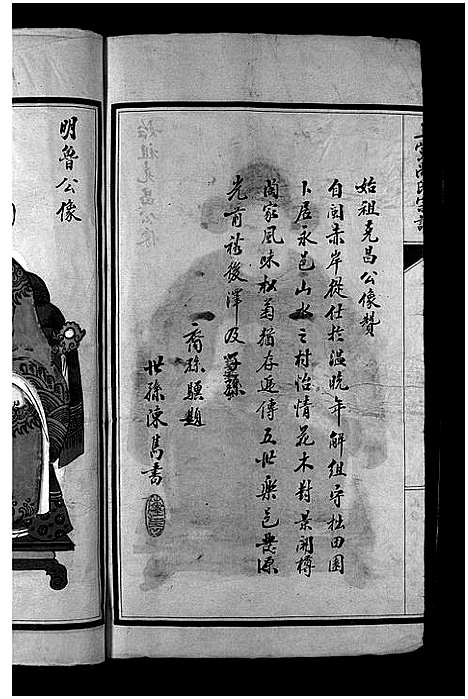 始祖克昌公像贊
自閩赤岸從仕於温晚年解組守拙田園
卜居永邑山水之村怡情花木對景開樽
尚家風味松菊猶存遞傳五世樂邑發源
光前裕後澤及子孫
裔孫驥題
世孫陳雋書
明魯公像